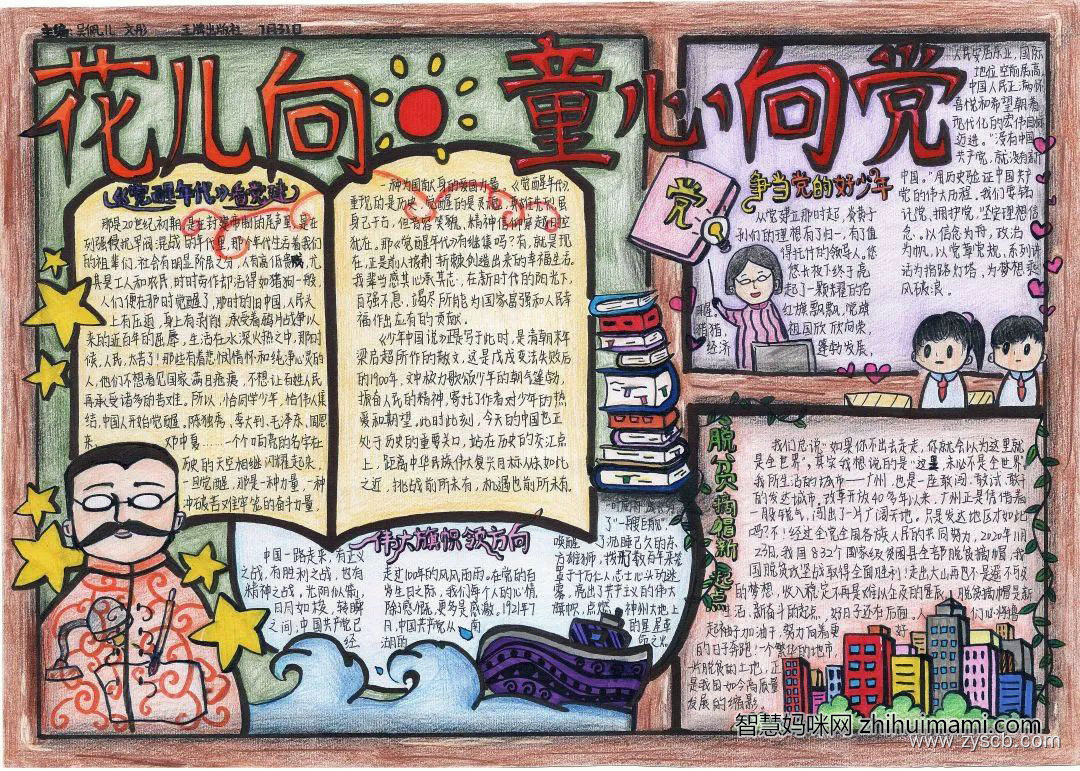 主编:吴佩儿 文彤 王牌出版社 1月31日
花儿向 童心向党
《觉醒年代》看党建
那是20世纪初期,是在封建
列强侵视,军阀混战的年代里,那个年代生活着我们
的祖辈们,社会有明显阶层之分,人有高低贵贱,尤
其是工人和农民,时时劳作却活得如猪狗一般,
人们便在那时觉醒了,那时的旧中国,人民头
上有压迫,身上有剥削,承受着鸦片战争以
来的近百年的屈辱,生活在水深火热之中,那时
候,人民,太苦了!那些有着悲悯情怀和纯净心灵的
人,他们不想看见国家满目疮痍,不想让百姓人民
再承受诸多的苦难。所以,恰同学少年,恰伟人集
结,中国人开始觉醒。陈独秀、李大钊、毛泽东、周恩
来
邓中夏……一个个响亮的名字在
历史的天空相继闪耀起来,
一旦觉醒,那是一种力量,一种
冲破苦难牢笼的奋斗力量,
一种为国献身的爱国力量。《觉醒年代》
重现的是历史,觉醒的是灵魂,
身已千古,但音容笑貌,精神信仰穿越时空
犹在。那《觉醒年代》有续集吗?有,就是现
在,正是前人披荆斩棘创造出来的幸福生活。
我辈当感其心承其志,在新时代的阳光下,
自强不息,竭尽所能为国家富强和人民幸
福作出应有的贡献。
《少年中国说》正是写于此时,是清朝末年
梁启超所作的散文,这是戊戌变法失败后
的1900年,文中极力歌颂少年的朝气蓬勃,
振奋人民的精神,寄托了作者对少年的热
爱和期望。此时此刻,今天的中国也正
处于历史的重要关口,站在历史的交汇点
上,距离中华民族伟大复兴目标从未如此
之近,挑战前所未有,机遇也前所未有。
伟大旗帜领方向
中国一路走来,有正义
之战,有胜利之战,也有
精神之战,光阴似箭,
日月如梭,转瞬
之间,中国共产党已
经
走过100年的风风雨雨。在党的百
岁生日之际,我们每个人的心情
除了感慨,更多是感激,1921年7
月,中国共产党从 南
湖的
了"一艘巨船。"
唤醒了沉睡已久的东
于千万仁人志士心头的迷
雾,亮出了共产主义的伟大
旗帜,点燃 神州大地上
的星星革
命之
争当党的好少年
党
从党建立那时起,炎黄子
孙们的理想有了归一,有了值
得托付的领导人。悠
悠长夜下终于亮
起了一颗耀眼的启
红旗飘飘,党旗
祖国欣欣向荣,
经济 蓬勃发展,
人民安居乐业,国际
地位空前居高,
中国人民正满怀
喜悦和希望朝着
现代化的宏伟目标
迈进。"没有中国
共产党,就没有新
中国。"用历史验证中国共产
党的伟大历程,我们要铭
记党、拥护党、坚定理想信
念。以信念为舟,政治
为帆,以党章党规,系列讲
话为指路灯塔,为梦想乘
风破浪。
脱贫摘帽新起点
我们尼说:如果你不出去走走,你就会认为这里就
是全世界。"其实我想说的是:"这里,未必不是全世界"
我所生活的城市——广州,也是一座敢闯、敢试、敢干
的发达城市。改革开放40多年以来,广州正是凭借着
一股年轻气,闯出了一片广阔天地。只是发达地区才如此
吗?不!经过全党全国各族人民的共同努力,2020年11
月23日,我国832个国家级贫困县全部脱贫摘帽,我
国脱贫攻坚战取得全面胜利!走出大山再也不是遥不可及
的梦想,收入稳定不再是难以企及的愿景。脱贫摘帽是新
生活、新奋斗的起点,好日子还在后面。人 们必将撸
起袖子加油干,努力向着更 好
的日子奔跑!一个繁华的城市,
一片脱贫的土地,正
是我国如今高质量
发展的缩影。
智慧妈咪网 zhihuimami.com
www.zyscb.com